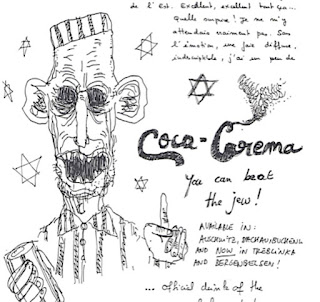 de l'Est. Excellent, excellent tout ça...
Quelle surprise ! Je ne m'y
attendais vraiment pas. Sans
l'émotion, une joie diffuse,
indescriptible, j'ai un peu de
Coca-Crema
You can beat
the jew!
AVAILABLE IN:
AUSCHWITZ, DACHAU, BUCHENW
AND NOW IN TREBLINKA
AND BERGENBELSEN!
... official drink of the